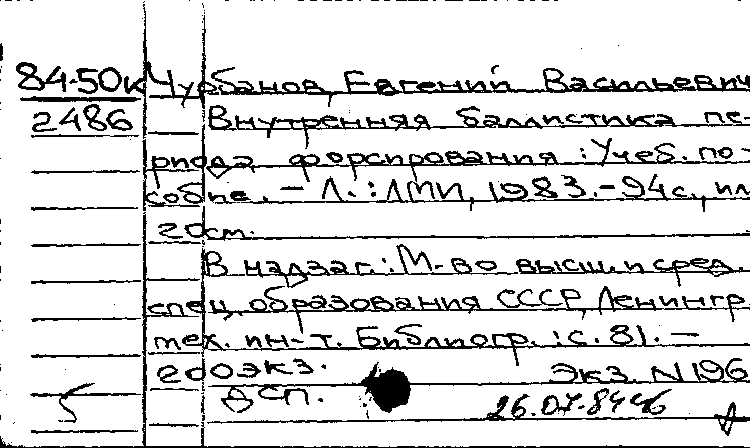 84-50к Чурбанов, Евгений Васильевич
2486 Внутренняя баллистика пе-
риода форсирования : Учеб. по-
собие. - Л. : ЛМИ, 1983. - 94 с., ил
20 см.
В надзаг.: М-во высш. и сред.
спец. образования СССР, Ленингр.
мех. ин-т. Библиогр.: с. 81. -
200 экз. Экз. N 196
ДСП.
5 26.07.84